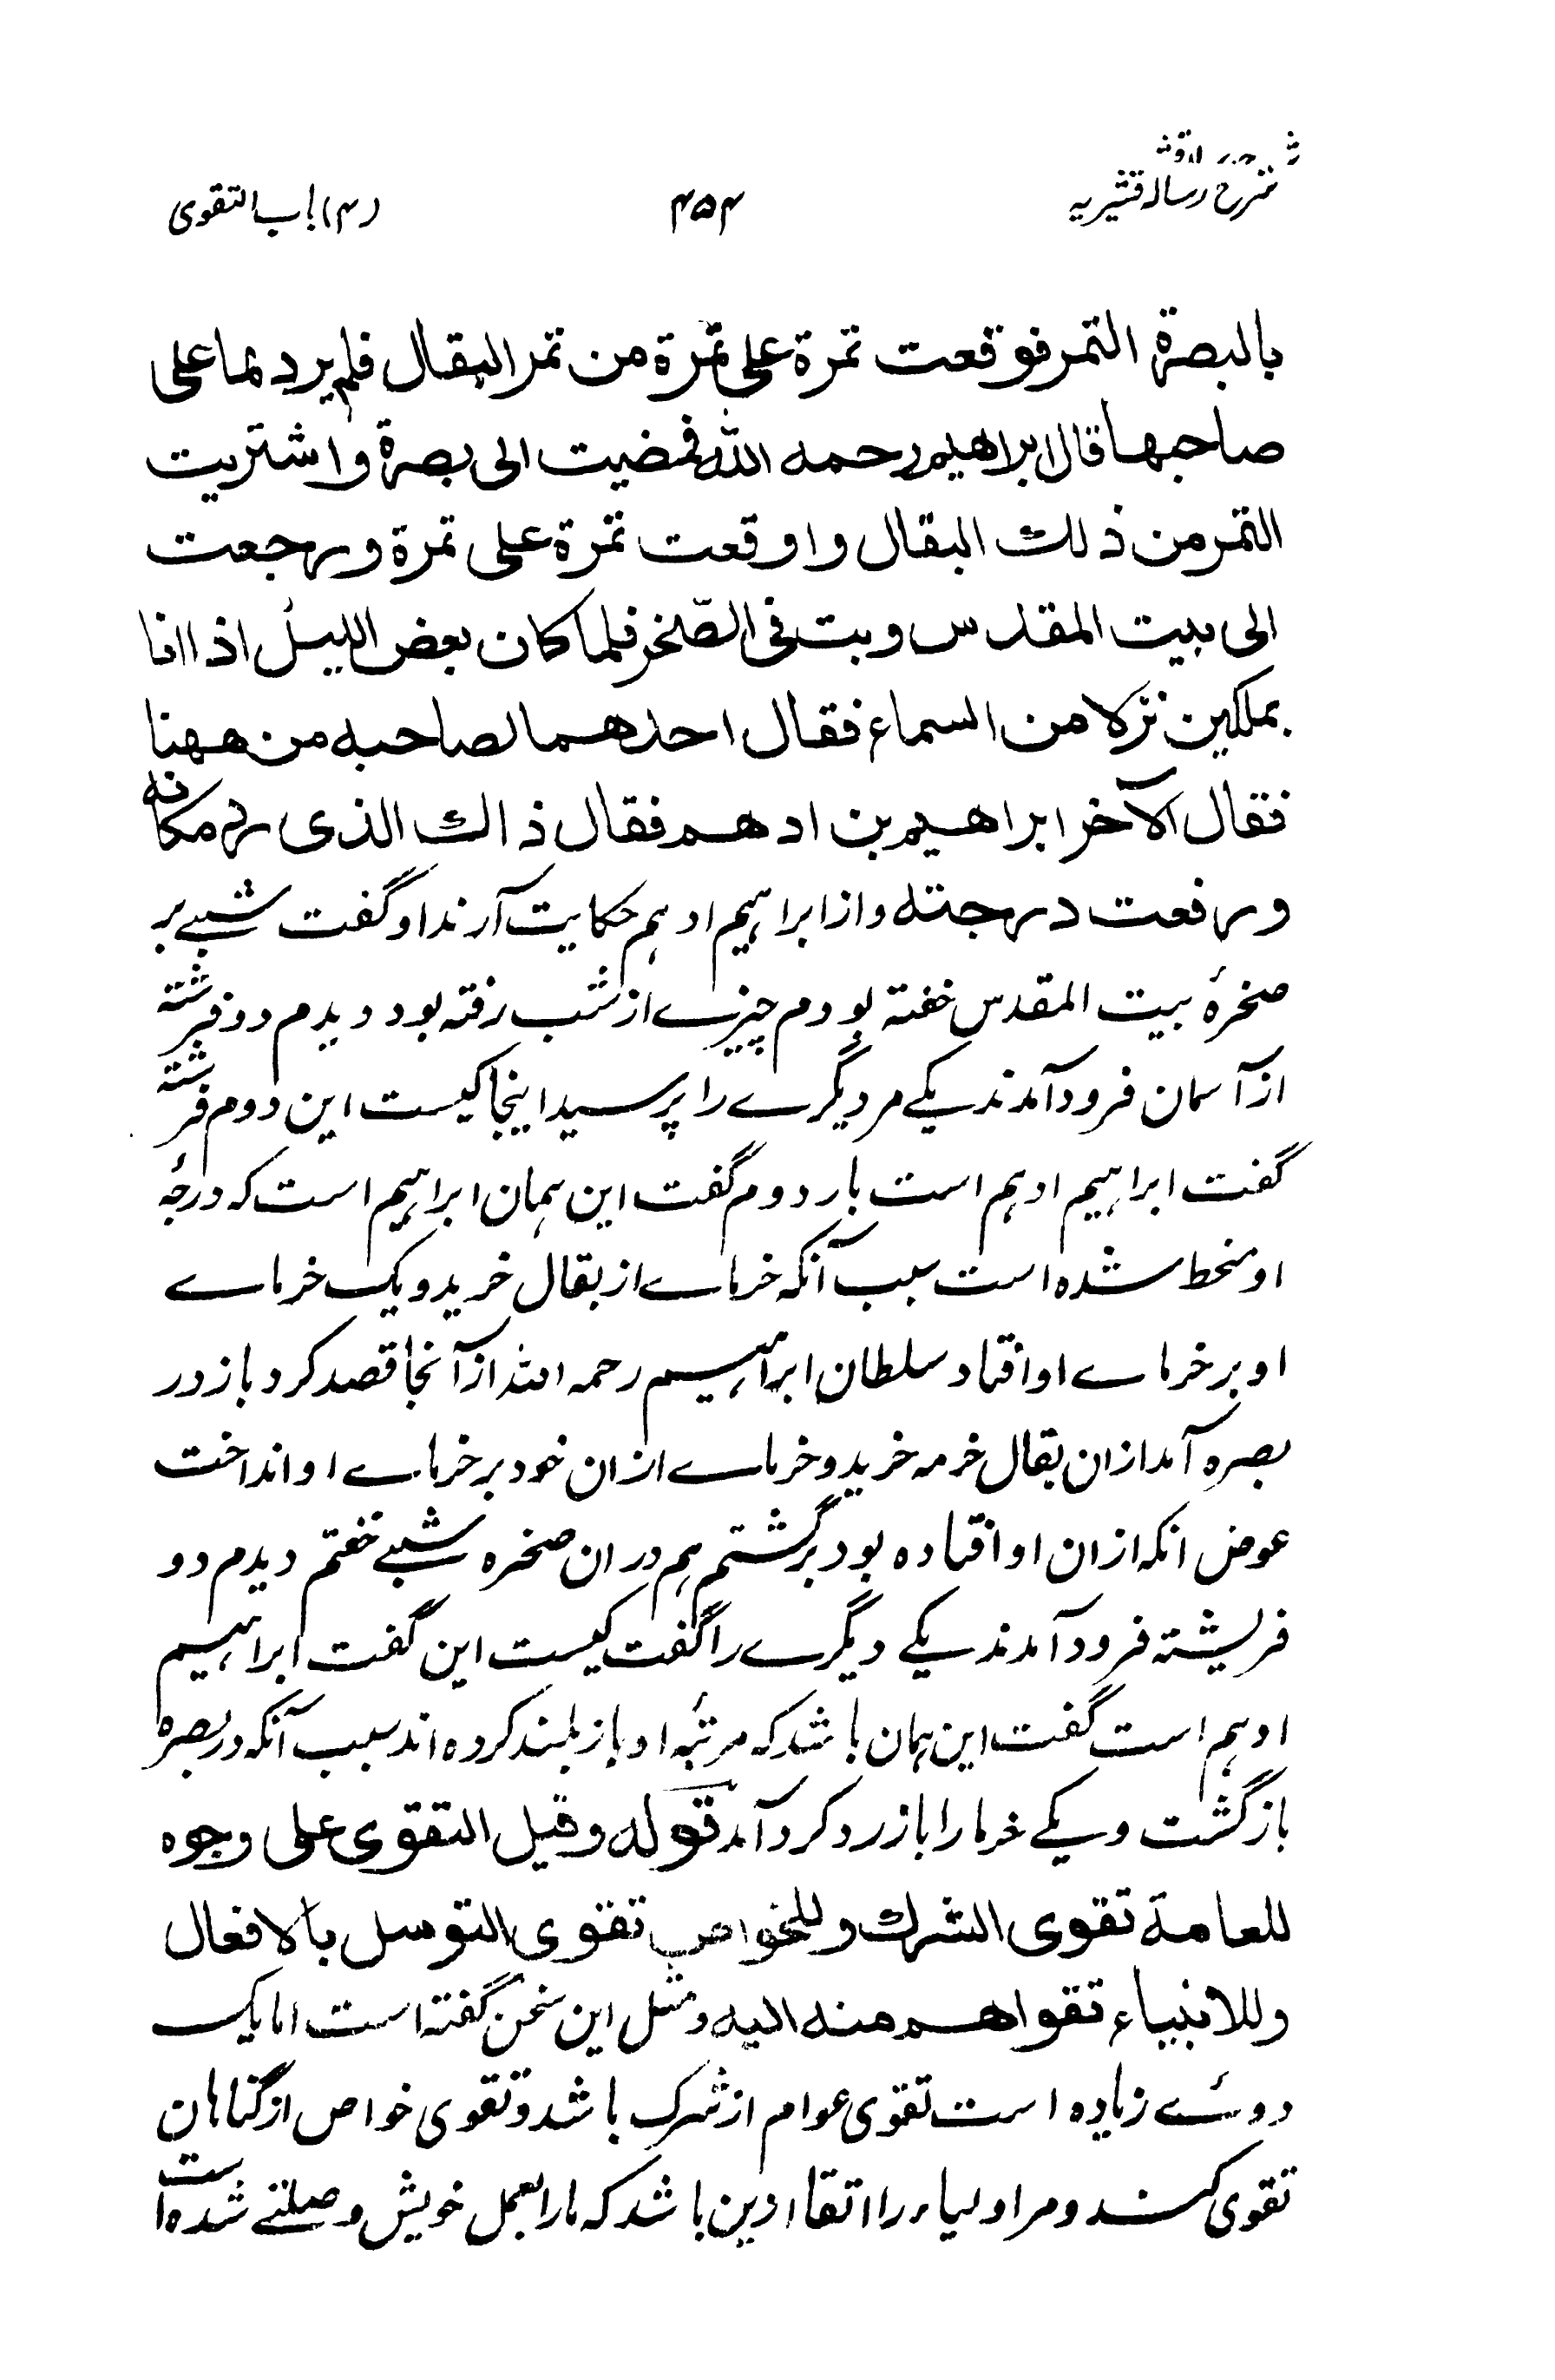 شرح رسالہ قشیریہ ۴۵۴ (۴) باب التقوی
بالبصرة التمر فوقعت تمرة علی تمرة من تمر البقال فلم یردہا علی
صاحبها قال ابراهیم رحمه اللّٰه فمضیت الی بصرة واشتریت
التمر من ذلك البقال واوقعت تمرة علی تمرة ورجعت
الی بیت المقدس وبت فی الصّخر فلما کان بعض اللیل اذا انا
بملکین نزلا من السماء فقال احدهما لصاحبه من ههنا
فقال الآخر ابراهیم بن ادهم فقال ذاك الذی رد مکانه
ورفعت درجته واز ابراہیم ادہم حکایت آرند او گفت شبے بر
صخرۂ بیت المقدس خفتہ بودم چیزے از شب رفتہ بود دیدم دو فرشتہ
از آسمان فرود آمدند یکے مر دیگرے را پرسید اینجا کیست این دوم فرشتہ
گفت ابراہیم ادہم است بار دوم گفت این ہمان ابراہیم است کہ درجۂ
او منحط شدہ است سبب آنکہ خرماے از بقال خرید و یک خرماے
او بر خرماے او افتاد سلطان ابراہیم رحمہ اللّٰہ از آنجا قصد کرد باز در
بصرہ آمد ازان بقال خرمہ خرید و خرماے ازان خود بر خرماے او انداخت
عوض انکہ ازان او افتادہ بود برگشتم ہم دران صخرہ شبے خفتم دیدم دو
فریشتہ فرود آمدند یکے دیگرے را گفت کیست این گفت ابراہیم
ادہم است گفت این ہمان باشد کہ مرتبۂ او باز بلند کردہ اند سبب آنکہ در بصرہ
بازگشت و یکے خرما را باز رد کرد آمد قوله وقیل التقوی علی وجوه
للعامة تقوی الشرك وللخواص تقوی التوسل بالافعال
وللانبیاء تقواهم منه الیه ومثل این سخن گفتہ است اما یک
دوئے زیادہ است تقوی عوام از شرک باشد و تقوی خواص از گناہان
تقوی کنند و مر اولیاء را اتقا ازین باشد کہ مارا بعمل خویش وصلتے شدہ است